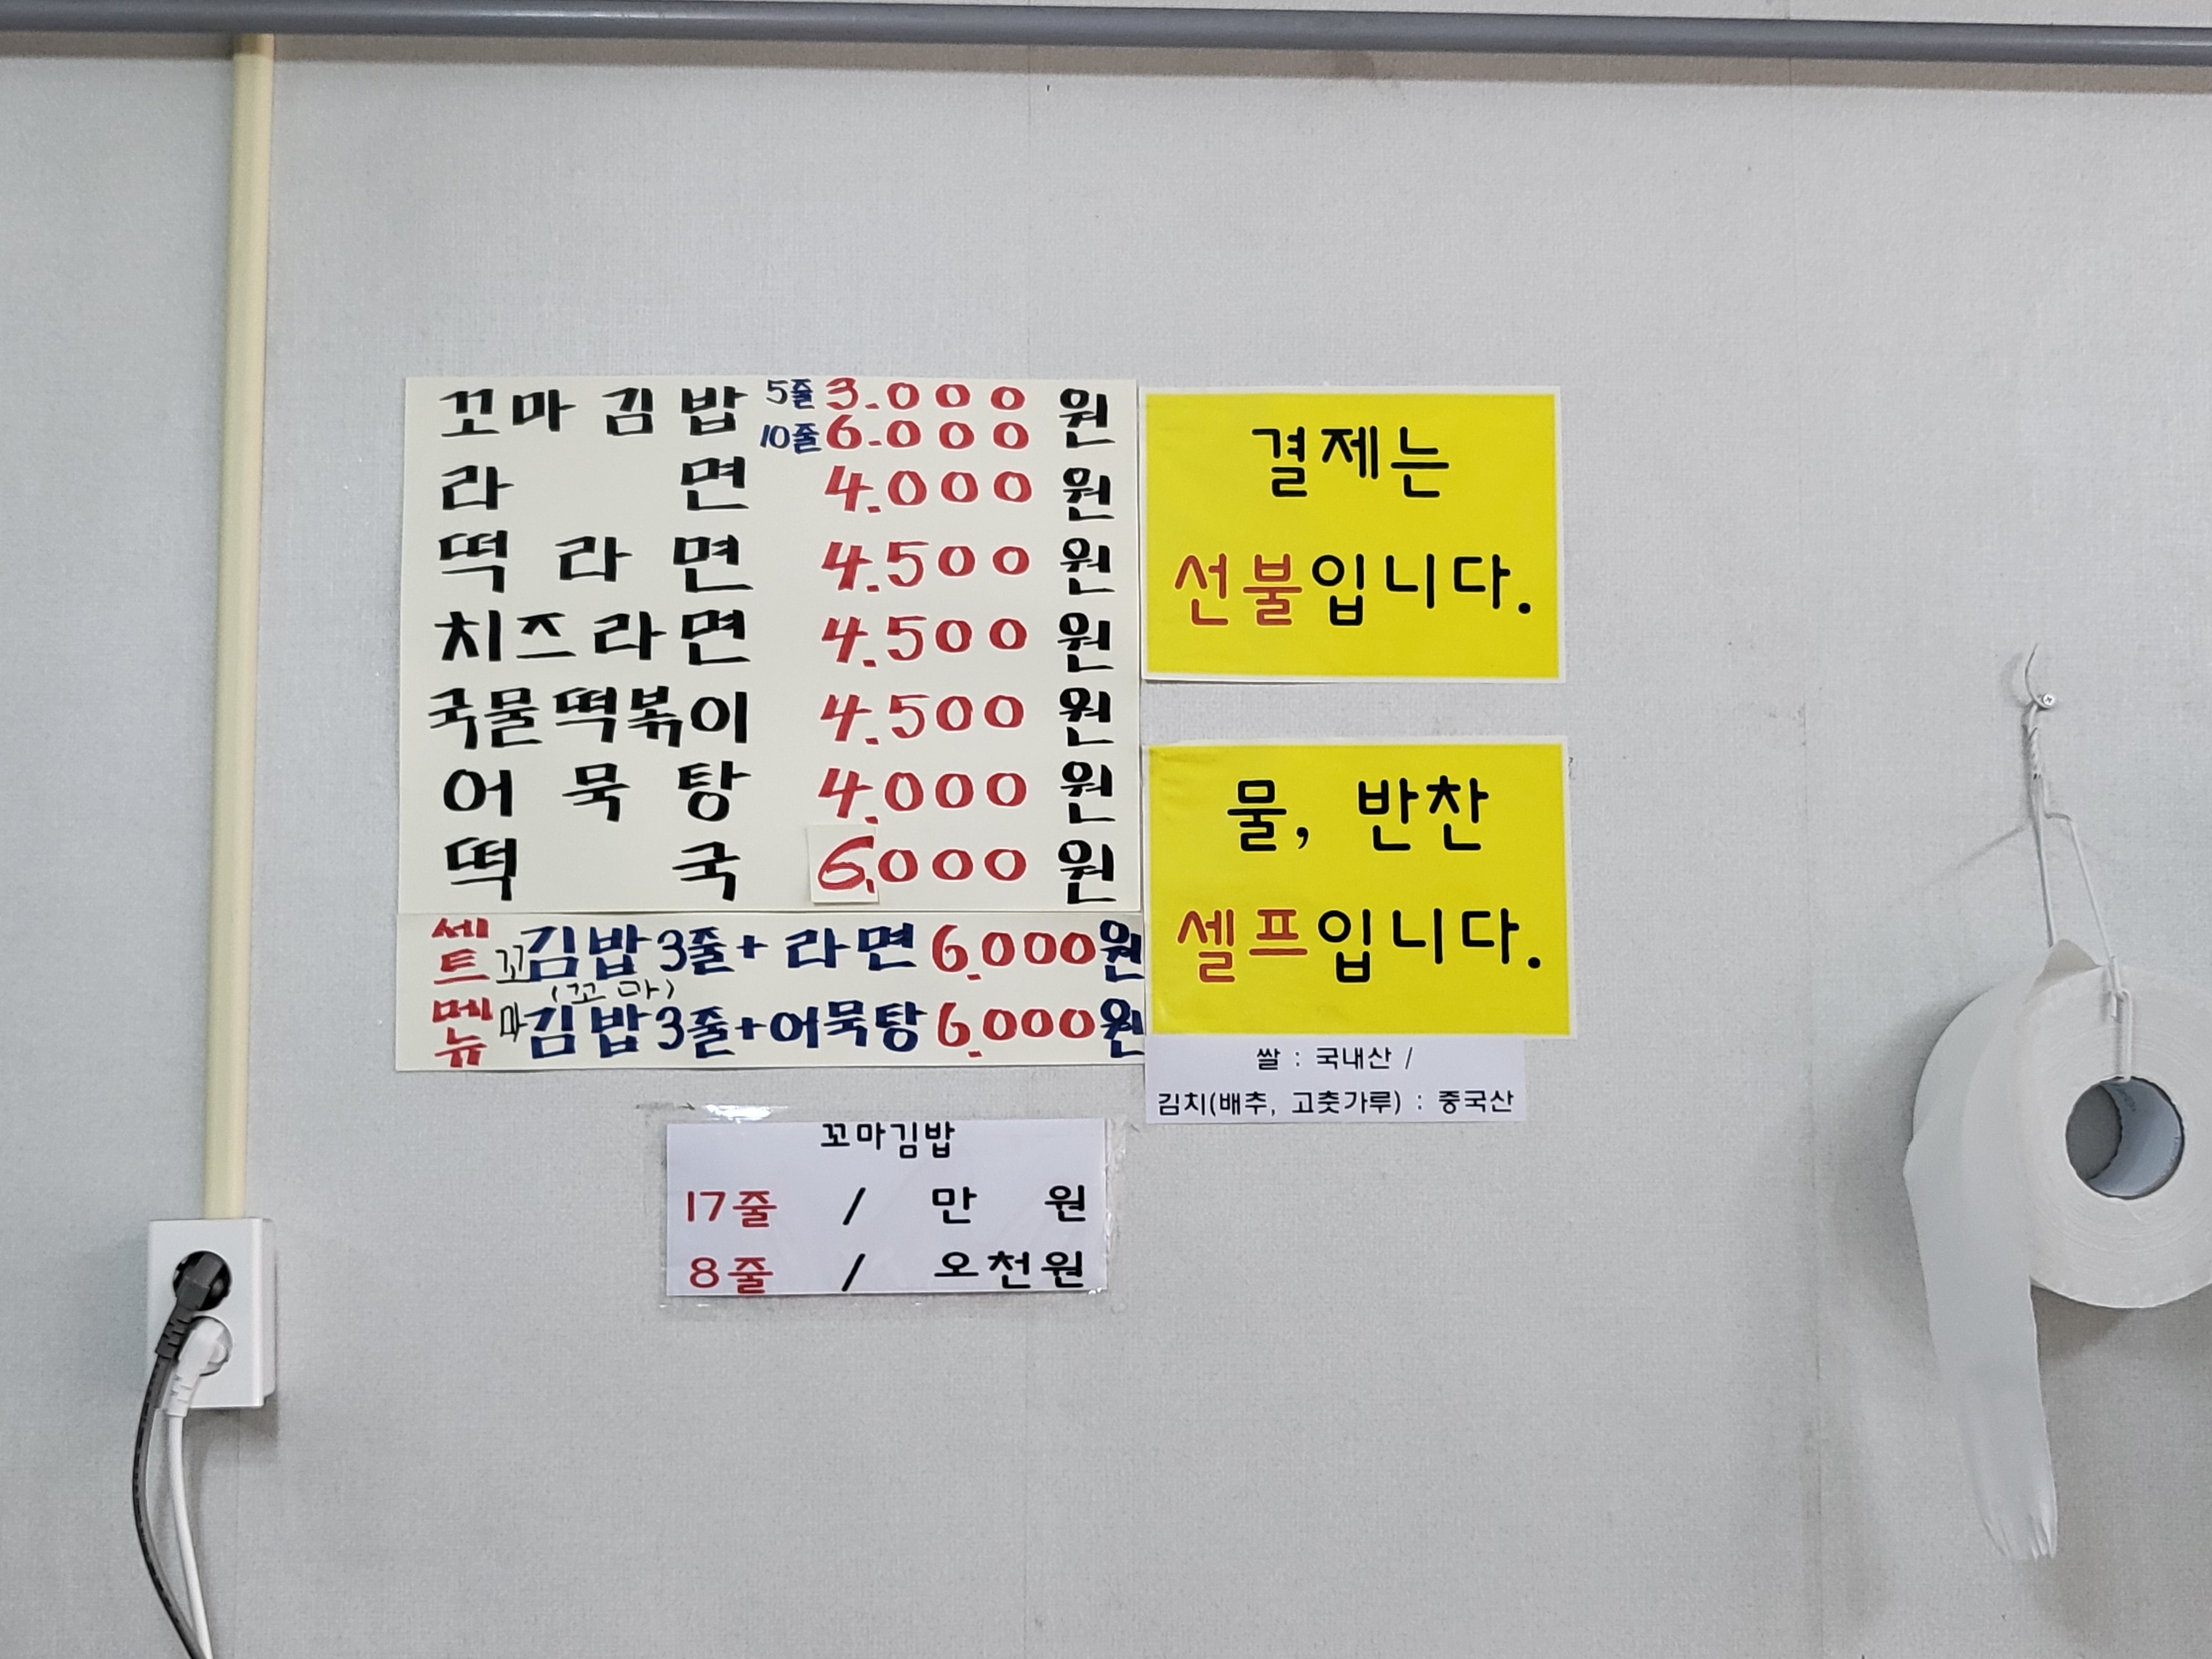 꼬마김밥 5줄 3.000 원
10줄 6.000
라면 4.000 원
떡라면 4.500 원
치즈라면 4.500 원
국물떡볶이 4.500 원
어묵탕 4.000 원
떡국 6,000 원
세트메뉴
꼬김밥3줄+라면 6.000원
(꼬마)
마김밥3줄+어묵탕 6.000원
결제는
선불입니다.
물, 반찬
셀프입니다.
쌀 : 국내산 /
김치(배추, 고춧가루) : 중국산
꼬마김밥
17줄 / 만 원
8줄 / 오천원